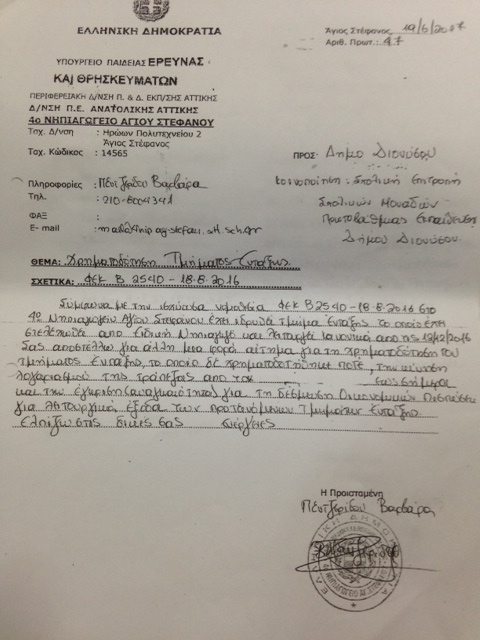 ΕΛΛΗΝΙΚΗ ΔΗΜΟΚΡΑΤΙΑ
Άγιος Στέφανος 19/6/2017
Αριθ. Πρωτ.: 47
ΥΠΟΥΡΓΕΙΟ ΠΑΙΔΕΙΑΣ ΕΡΕΥΝΑΣ
ΚΑΙ ΘΡΗΣΚΕΥΜΑΤΩΝ
ΠΕΡΙΦΕΡΕΙΑΚΗ Δ/ΝΣΗ Π. & Δ. ΕΚΠ/ΣΗΣ ΑΤΤΙΚΗΣ
Δ/ΝΣΗ Π.Ε. ΑΝΑΤΟΛΙΚΗΣ ΑΤΤΙΚΗΣ
4ο ΝΗΠΙΑΓΩΓΕΙΟ ΑΓΙΟΥ ΣΤΕΦΑΝΟΥ
Ταχ. Δ/νση : Ηρώων Πολυτεχνείου 2
Άγιος Στέφανος
Ταχ. Κώδικας : 14565
ΠΡΟΣ: Δήμο Διονύσου
Κοινοποίηση: Σχολική Επιτροπή
Σχολικών Μονάδων
Πρωτοβάθμιας Εκπαίδευσης
Δήμου Διονύσου
Πληροφορίες : Πεντζερίδου Βαρβάρα
Τηλ. : 210-6004341
ΦΑΞ :
E- mail : mail@nip-ag-stefan.att.sch.gr
ΘΕΜΑ: Χρηματοδότηση Τμήματος Ένταξης
ΣΧΕΤΙΚΑ: ΦΕΚ Β 2540-18.8.2016
Σύμφωνα με την ισχύουσα νομοθεσία ΦΕΚ Β2540-18.8.2016 στο
4ο Νηπιαγωγείο Αγίου Στεφάνου έχει ιδρυθεί τμήμα Ένταξης το οποίο έχει
στελεχωθεί από Ειδική Νηπιαγωγό και λειτουργεί κανονικά από τις 12/12/2016
Σας αποστέλλω για άλλη μια φορά αίτημα για τη χρηματοδότηση του
τμήματος Ένταξης, το οποίο δε χρηματοδοτήθηκε ποτέ, την κίνηση
λογαριασμού της τράπεζας από τον έως σήμερα
και την έγκριση (αναγκαιότητα) για τη δέσμευση Οικονομικών Πιστώσεων
για λειτουργικά έξοδα των προτεινόμενων Τμημάτων Ένταξης.
ελπίζω στις δικές σας ενέργειες
Η Προϊσταμένη
Πεντζερίδου Βαρβάρα